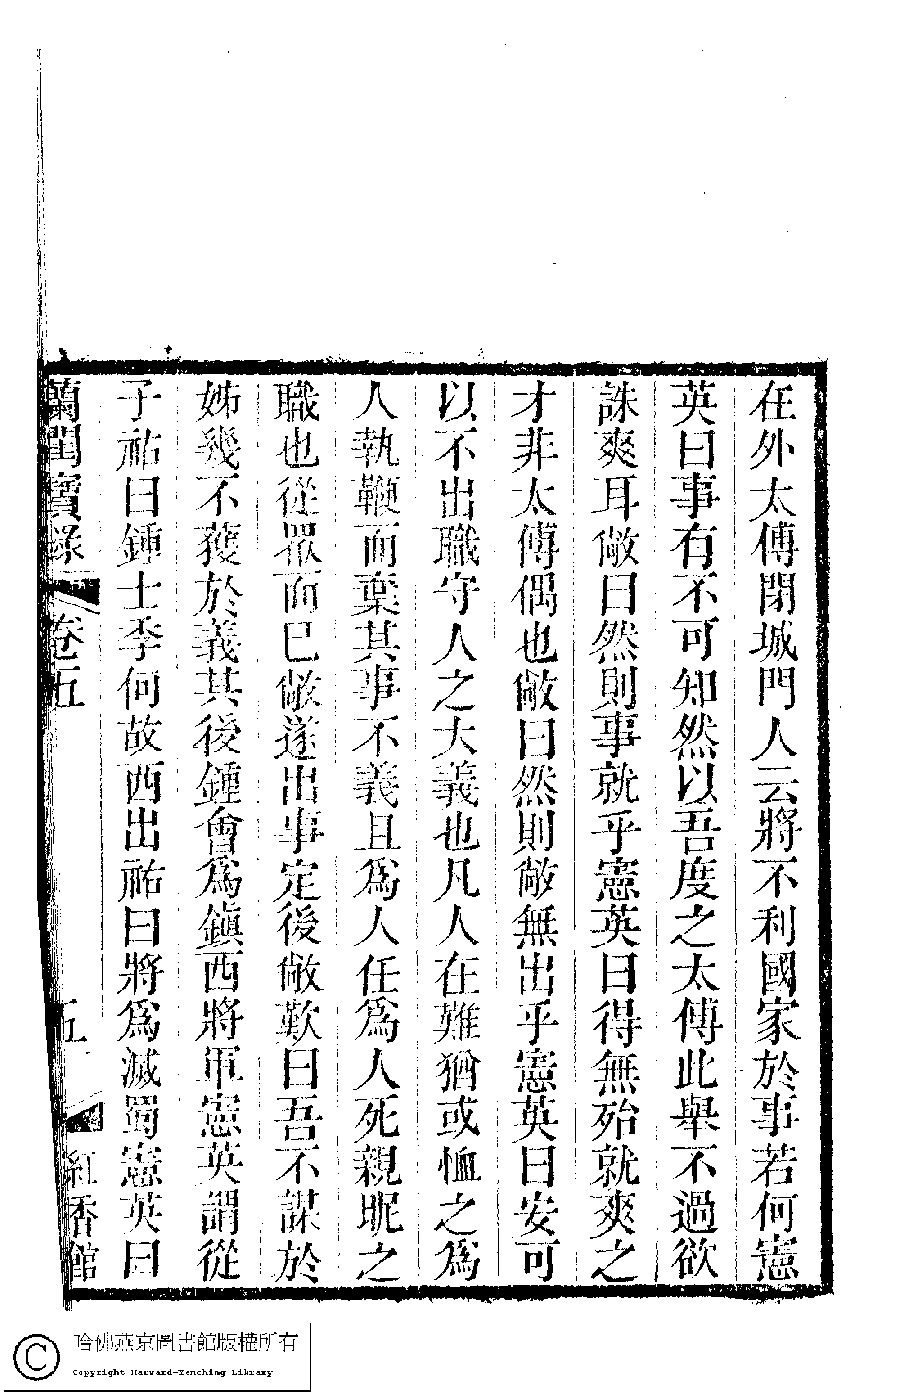 在外太傅閉城門人云將不利國家於事若何憲
英曰事有不可知然以吾度之太傅此舉不過欲
誅爽耳敞曰然則事就乎憲英曰得無殆就爽之
才非太傅偶也敞曰然則敞無出乎憲英曰安可
以不出職守人之大義也凡人在難猶或恤之爲
人執鞭而棄其事不義且爲人任爲人死親昵之
職也從眾而已敞遂出事定後敞歎曰吾不謀於
姊幾不獲於義其後鍾會爲鎮西將軍憲英謂從
子祜曰鍾士季何故西出祜曰將爲滅蜀憲英曰
蘭閨寶錄 卷五 五 紅香館
哈佛燕京圖書館版權所有
Copyright Harvard-Yenching Library